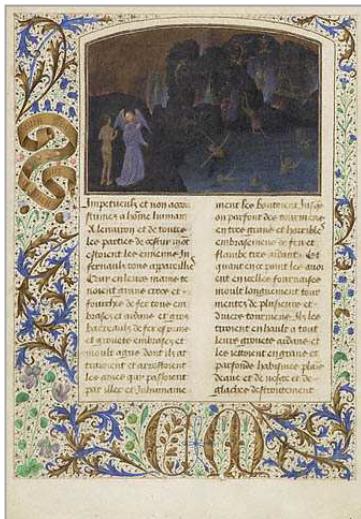 Impetueulx et non acou
stumez a home humain
A lenviron et de toutes
les parties de cestui mont
estoient les ennemis In
fernaulx tous appareillies
Car en leurs mains te
noient aucuns croes et
fourches de fer tous em
brasez et ardans et grans
de fer
et embrasez et
moult agus dont ilz at
tiroient et arrestoient
les ames qui passoient
par illec et Inhumaine
ment les boutoient Jusques
ou parfont des tourmens
en tres grant et horrible
embrasement de feu et
flambe tres ardante Et
quant en ce point les avoi
ent en icelles fournaises
moult longuement tour
mentez de plusieurs et
divers tourmens Ilz les
tiroient en hault a tout
leurs ardans et
les jettoient en grans et
parfondz habismes plains
deaue et de neges et de
glaches